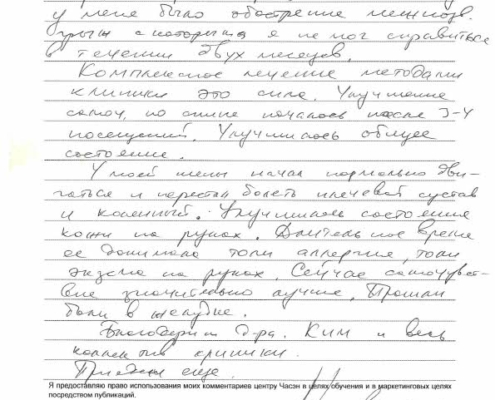 у меня было обострение межпозв.
грыж с которыми я не мог справиться
в течении двух месяцев.
Комплексное лечение методами
клиники это сила. Улучшение
самоч. по спине началось после 3-4
посещений. Улучшилось общее
состояние.
У моей жены начал нормально дви-
гаться и перестал болеть плечевой сустав
и коленный. Улучшилось состояние
кожи на руках. Длительное время
ее донимала то ли аллергия, то ли
экзема на руках. Сейчас самочувст-
вие значительно лучше. Прошли
боли в желудке.
Благодарим д-ра. Ким и весь
коллектив клиники.
Придем еще.
Я предоставляю право использования моих комментариев центру Часэн в целях обучения и в маркетинговых целях
посредством публикаций.